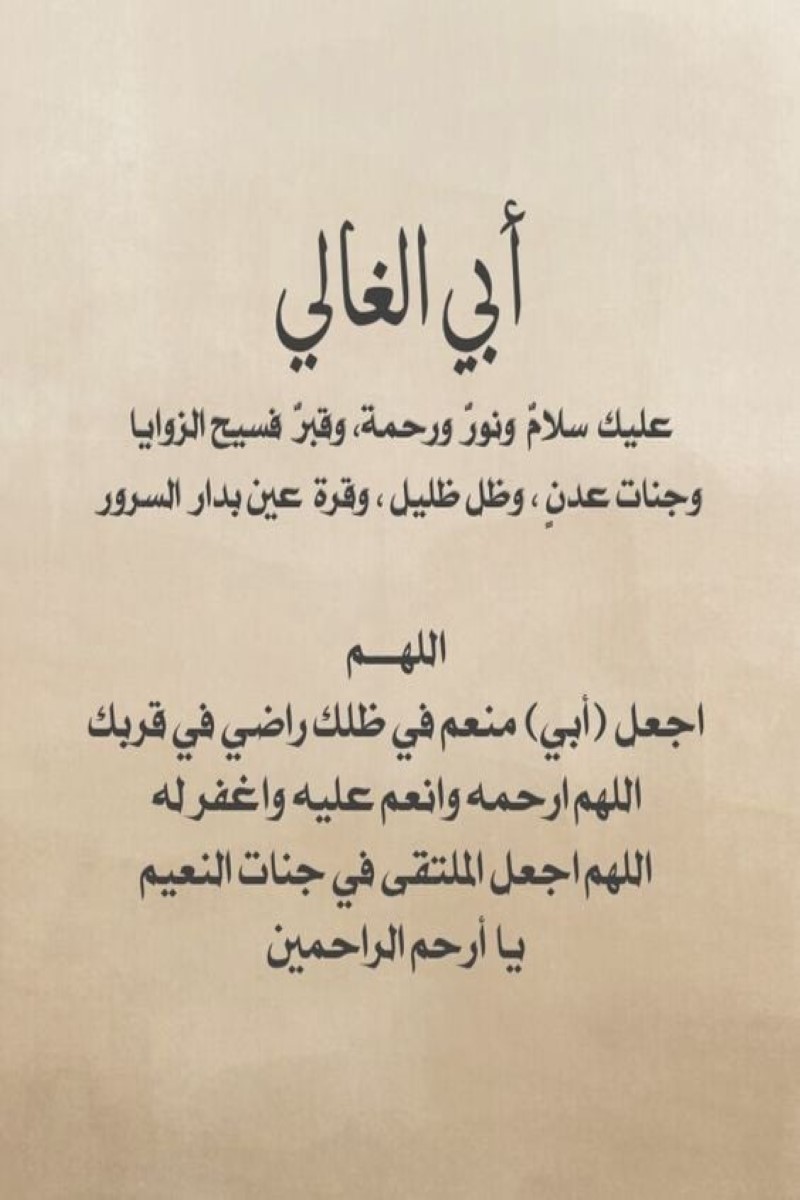 أبي الغالي
عليك سلامٌ ونورٌ ورحمة، وقبرٌ فسيح الزوايا
وجنات عدنٍ ، وظل ظليل ، وقرة عين بدار السرور
اللهـم
اجعل (أبي) منعم في ظلك راضي في قربك
اللهم ارحمه وانعم عليه واغفر له
اللهم اجعل الملتقى في جنات النعيم
يا أرحم الراحمين